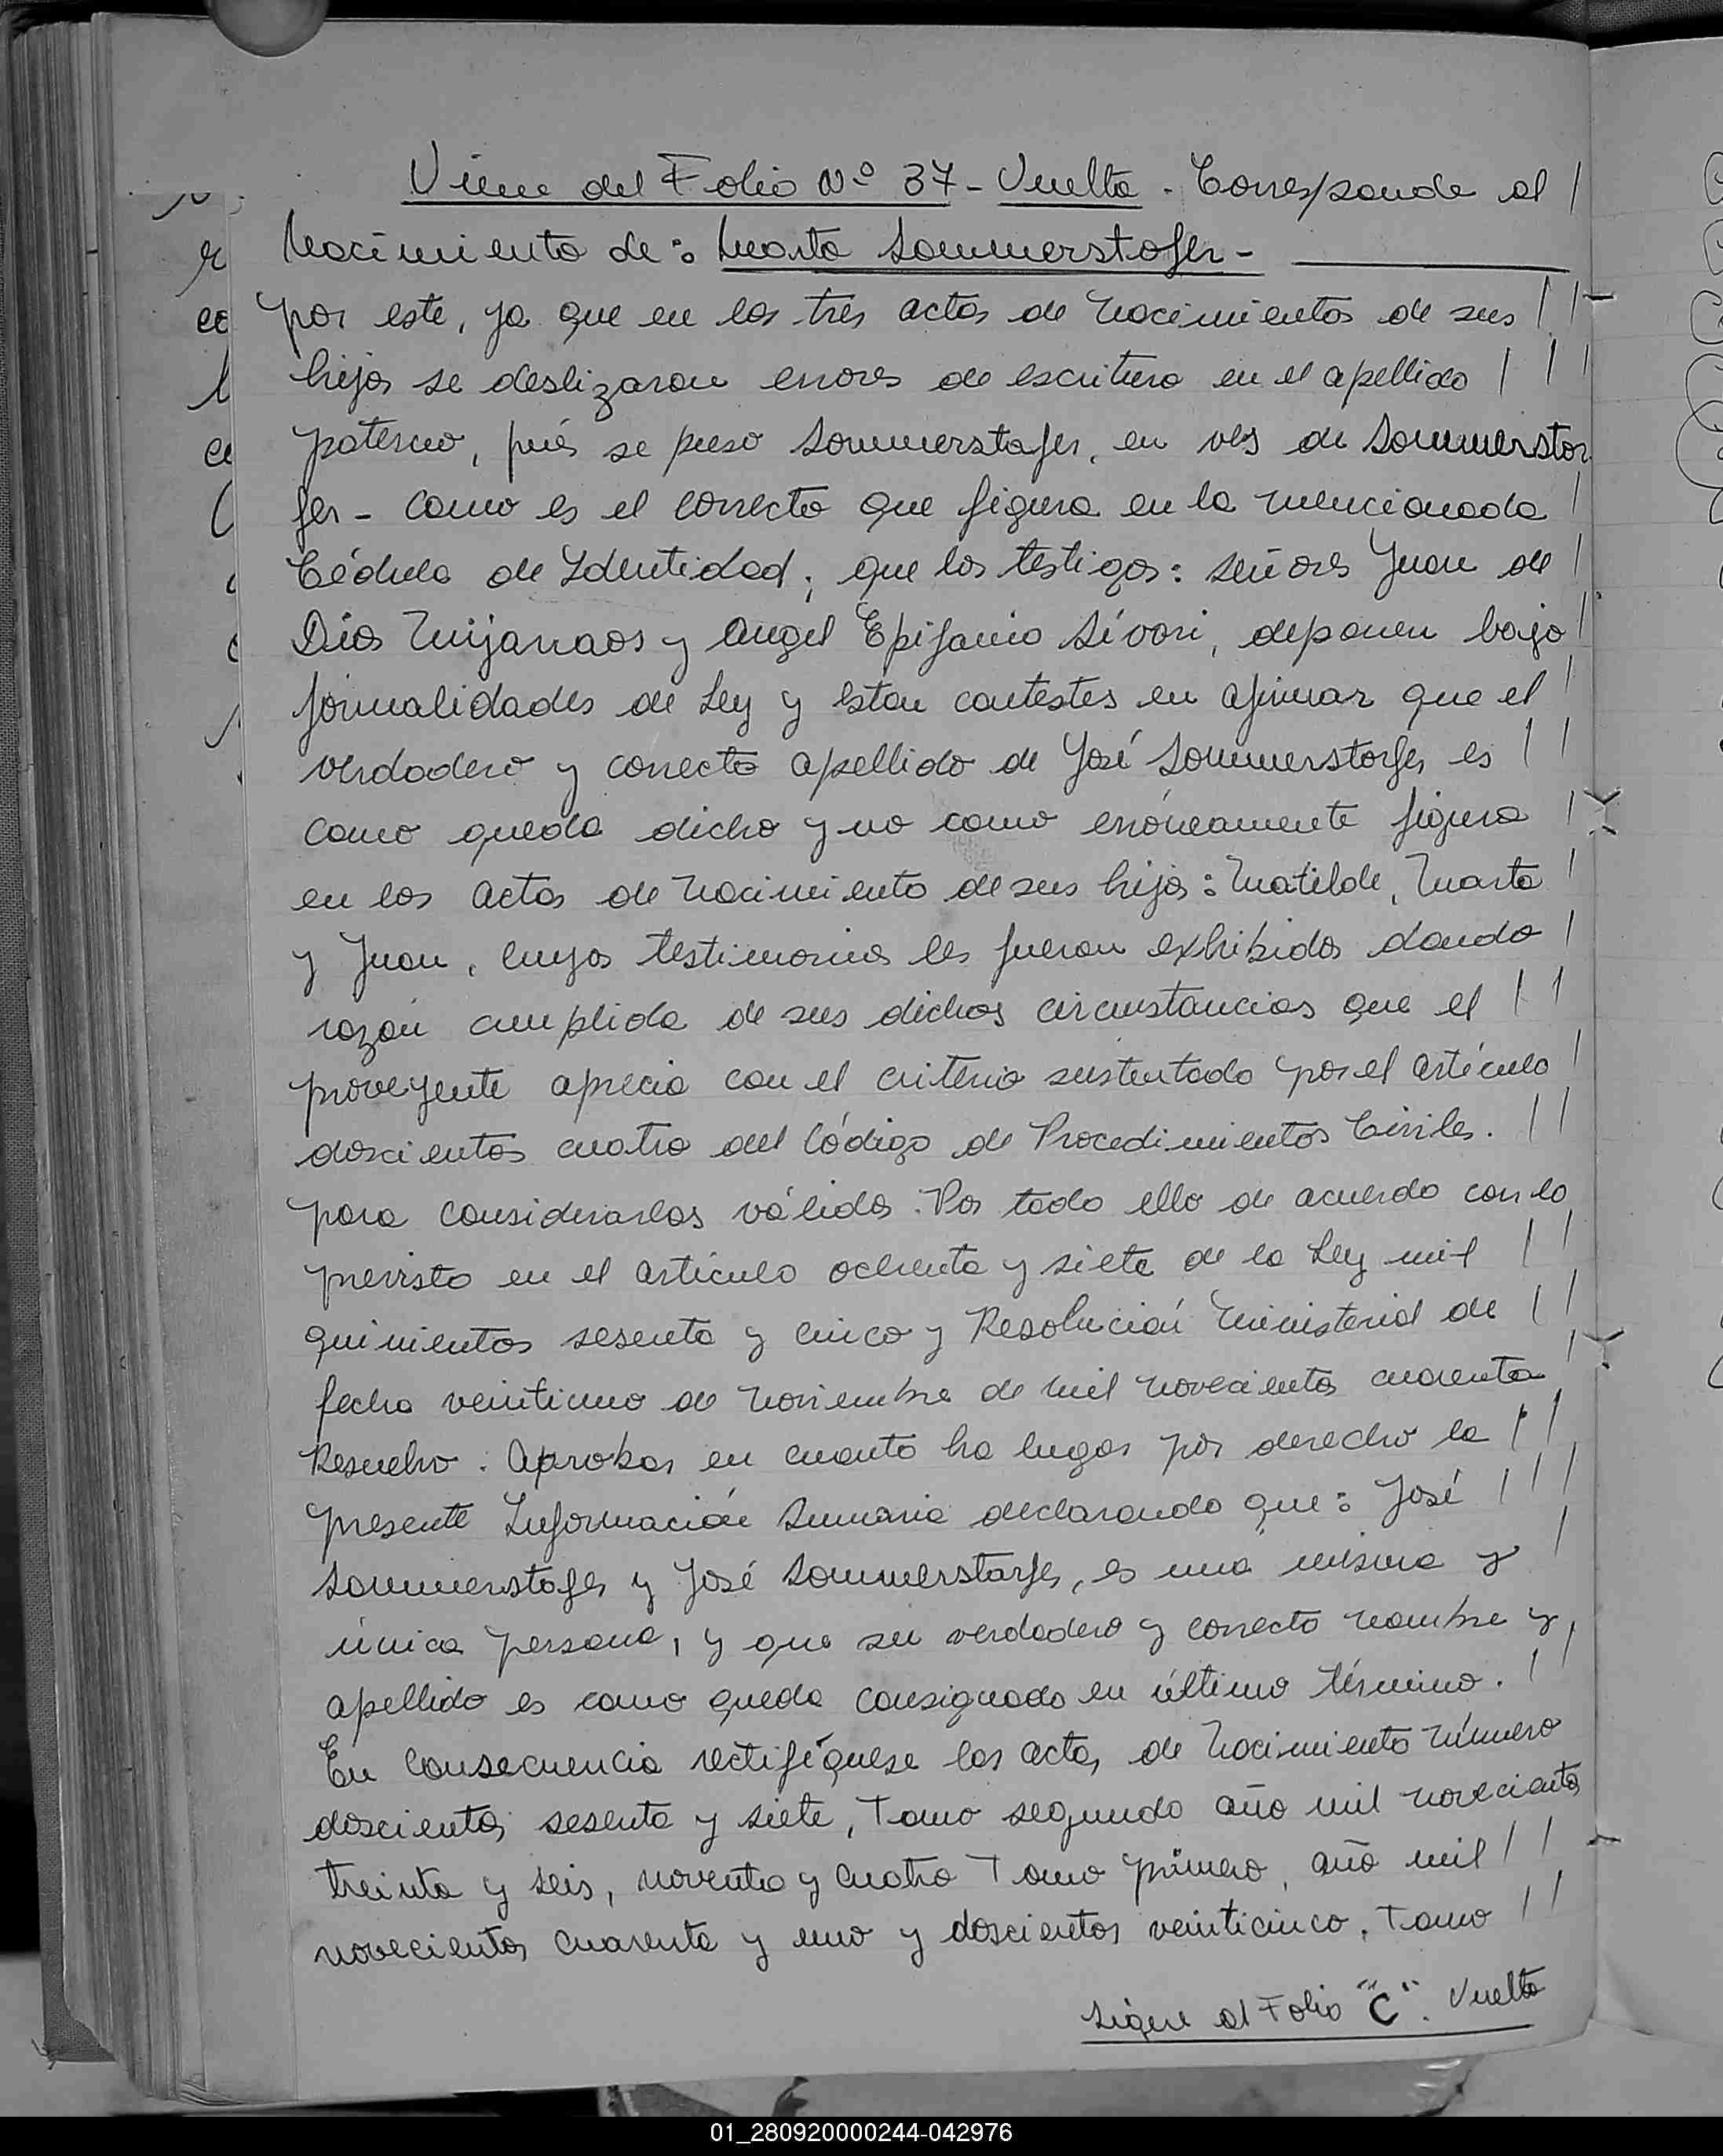 Viene del Folio Nº 37 - Vuelta - Corresponde al /
Nacimiento de: Marta Sommerstofer -
por este, ya que en las tres actas de nacimientos de sus / /
hijos se deslizaron errores de escritura en el apellido / / /
paterno, pués se puso Sommerstofer, en ves de Sommerstor
fer - como es el correcto que figura en la mencionada /
Cédula de Identidad; que los testigos: señores Juan de /
Dios Mijanaos y Angel Epifanio Sívori, deponen bajo /
formalidades de Ley y estan contestes en afirmar que el /
verdadero y correcto apellido de José Sommerstorfer es / /
como queda dicho y no como erróneamente figura /
en las actas de nacimiento de sus hijos: Matilde, Marta /
y Juan, cuyos testimonios les fueron exhibidos dando /
razón cumplida de sus dichos circunstancias que el / /
proveyente aprecia con el criterio sustentado por el artículo /
doscientos cuatro del Código de Procedimientos Civiles. / /
para considerarlas válidas. Por todo ello de acuerdo con lo
previsto en el artículo ochenta y siete de la Ley mil / /
quinientos sesenta y cinco y Resolución Ministerial de / /
fecha veintiuno de noviembre de mil novecientos cuarenta /
Resuelvo: Aprobar en cuanto ha lugar por derecho la / /
presente Información Sumaria declarando que: José / / /
Sommerstofer y José Sommerstorfer, es una misma y /
única persona, y que su verdadero y correcto nombre y /
apellido es como queda consignado en último término. / /
En consecuencia rectifíquese las actas de nacimiento número
doscientos sesenta y siete, Tomo segundo año mil novecientos
treinta y seis, noventa y cuatro Tomo primero, año mil / /
novecientos cuarenta y uno y doscientos veinticinco, Tomo / /
Sigue al Folio "C". Vuelta
01_280920000244-042976